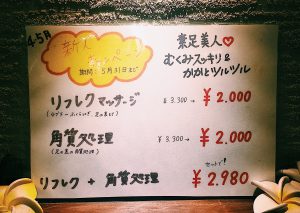 4.5月
新人
キャンペーン
期間:5月31日まで
素足美人♡
むくみスッキリ&
かかとツルツル
リフレクマッサージ
¥3,300→¥2,000
角質処理
(足の裏の角質処理)
¥3,300→¥2,000
セットで!
リフレク + 角質処理 ¥2,980